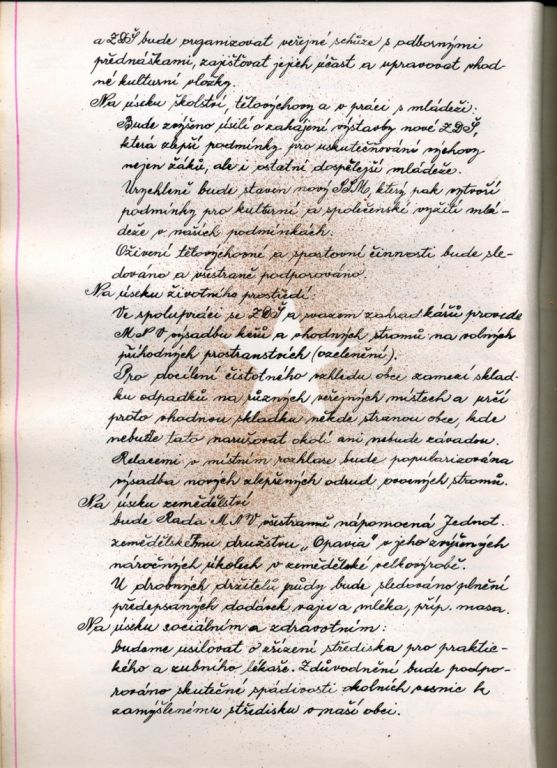 a ZDŠ bude organizovat veřejné schůze s odbornými
přednáškami, zajišťovat jejich účast a upravovat vhod-
né kulturní vložky.
Na úseku školství, tělovýchovy a v práci s mládeží:
Bude zvýšeno úsilí o zahájení výstavby nové ZDŠ,
která zlepší podmínky pro uskutečňování výchovy
nejen žáků, ale i ostatní dospělejší mládeže.
Urychleně bude staven nový SSM, který pak vytvoří
podmínky pro kulturní a společenské vyžití mlá-
deže v našich podmínkách.
Oživení tělovýchovné a sportovní činnosti bude sle-
dováno a všestraně podporováno.
Na úseku životního prostředí:
Ve spolupráci se ZDŠ a svazem zahrádkářů provede
MNV výsadbu keřů a vhodných stromů na volných
příhodných prostranstvích (ozelenění).
Pro docílení čistotného vzhledu obce zamezí sklád-
ku odpadků na různých veřejných místech a určí
proto vhodnou skládku někde stranou obce, kde
nebude tato narušovat okolí ani nebude závadou.
Relacemi v místním rozhlase bude popularizována
výsadba nových zlepšených odrud ovocných stromů.
Na úseku zemědělství
bude Rada MNV všestranně nápomocná Jednot.
zemědělskému družstvu „Opavia" v jeho zvýšených
náročných úkolech v zemědělské velkovýrobě.
U drobných držitelů půdy bude sledováno plnění
předepsaných dodávek vajec a mléka, příp. masa.
Na úseku sociálním a zdravotním:
budeme usilovat o zřízení střediska pro praktic-
kého a zubního lékaře. Zdůvodnění bude podpo-
rováno skutečné spádivosti okolních vesnic k
zamýšlenému středisku v naší obci.